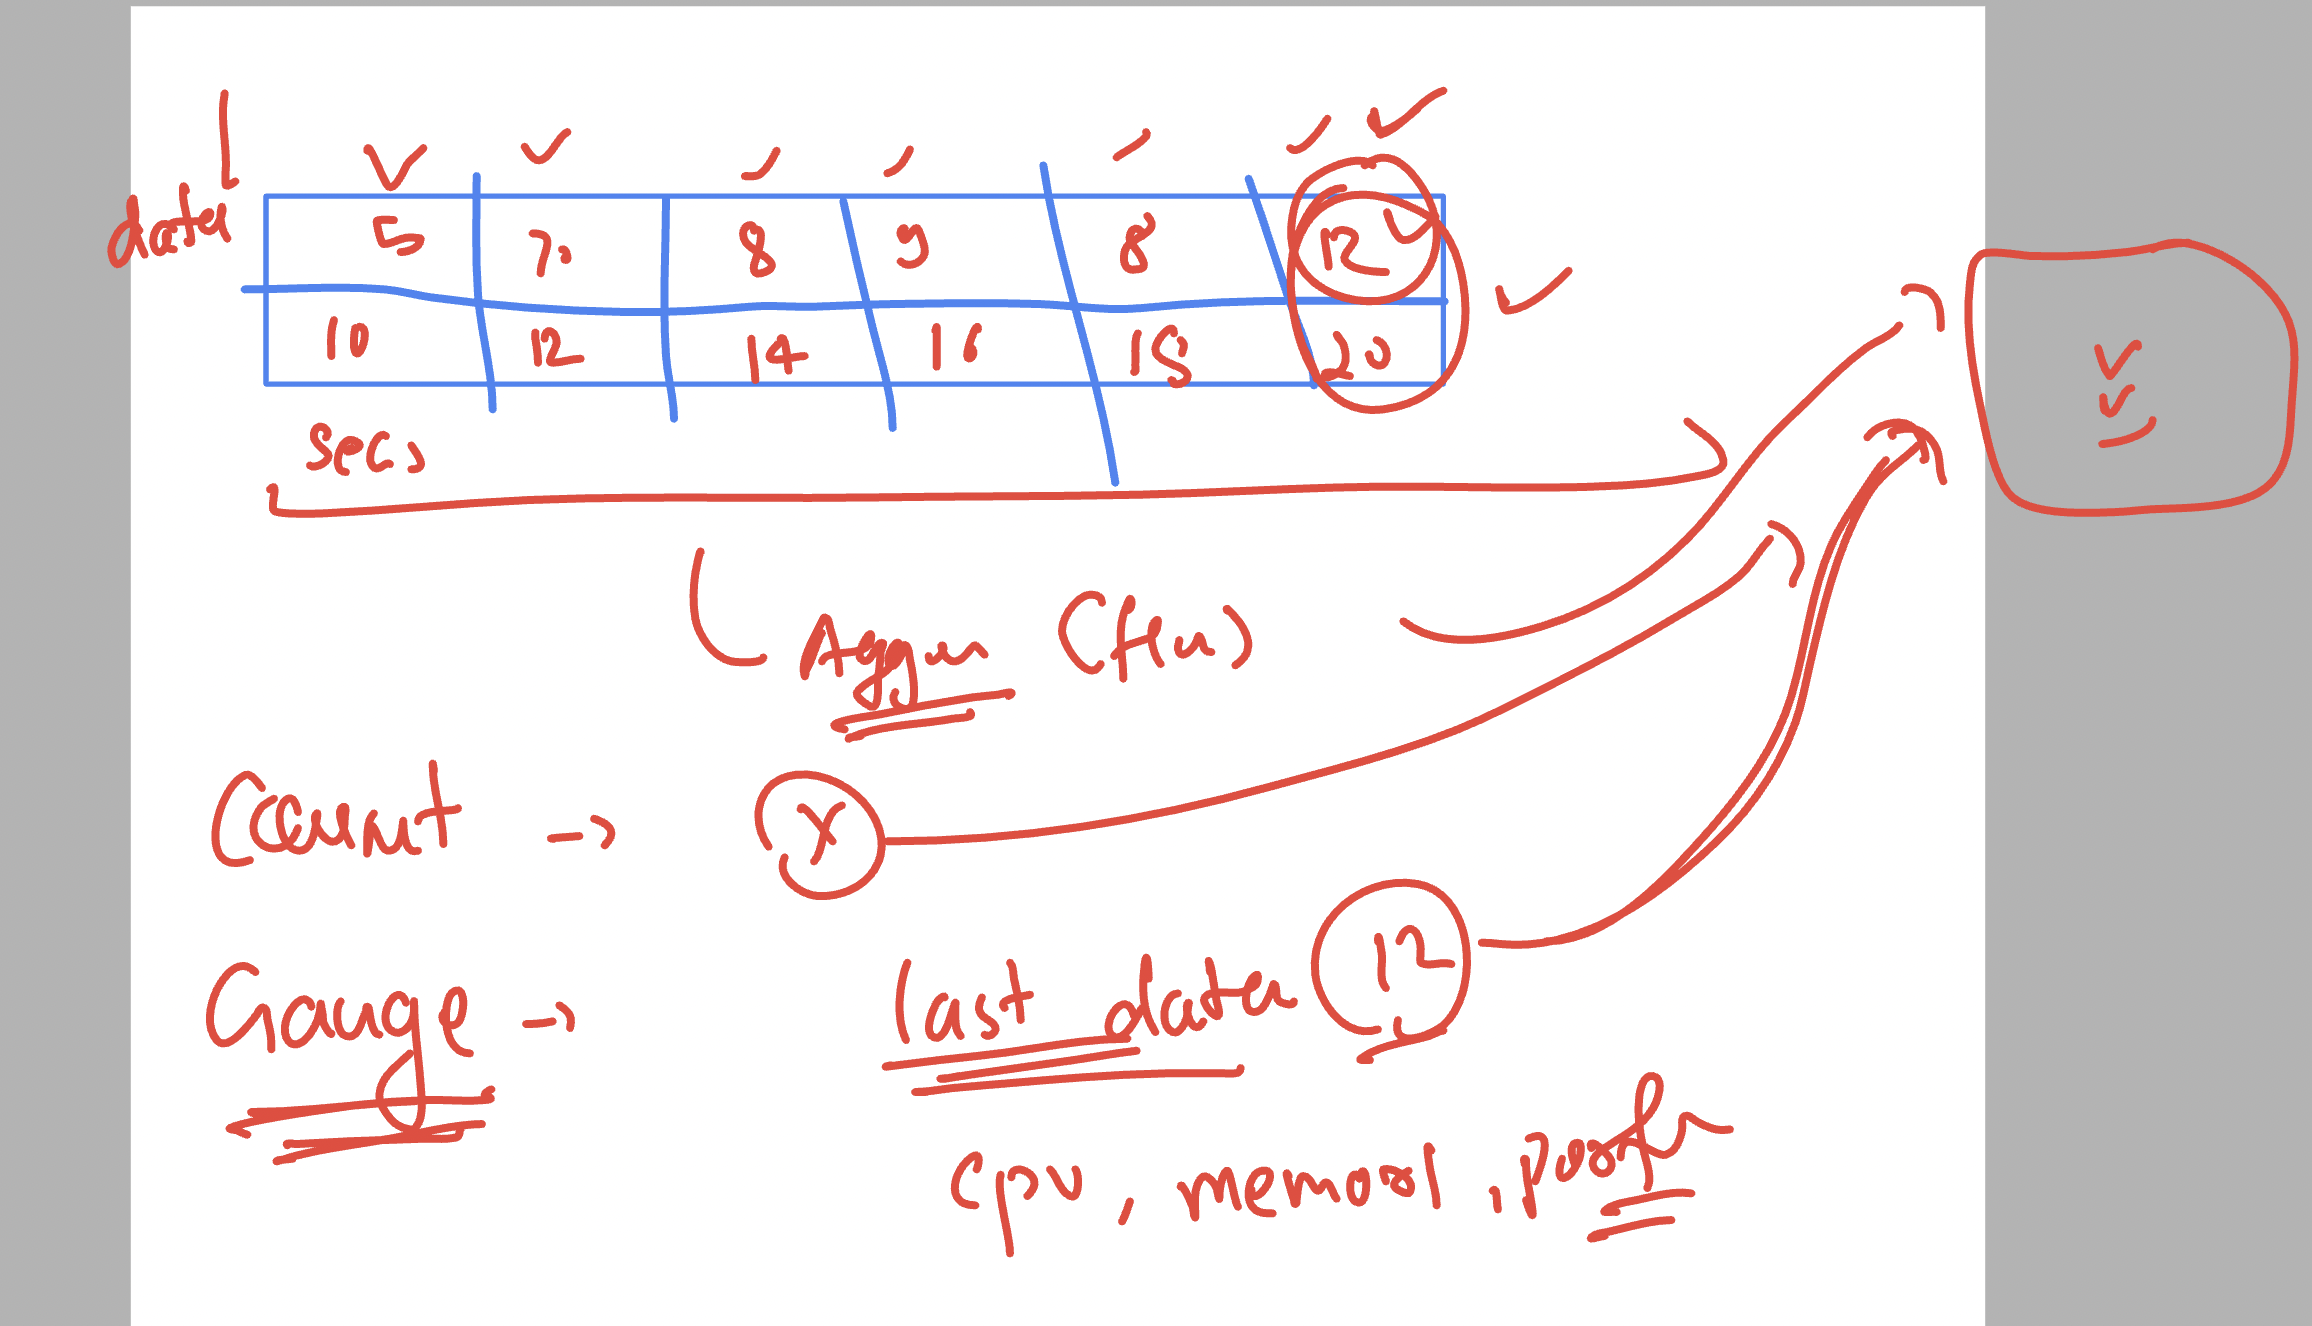 data
5 7 8 9 8 12
10 12 14 16 18 20
secs
Aggr
Count -> x
Gauge -> last data 12
cpu, memory,